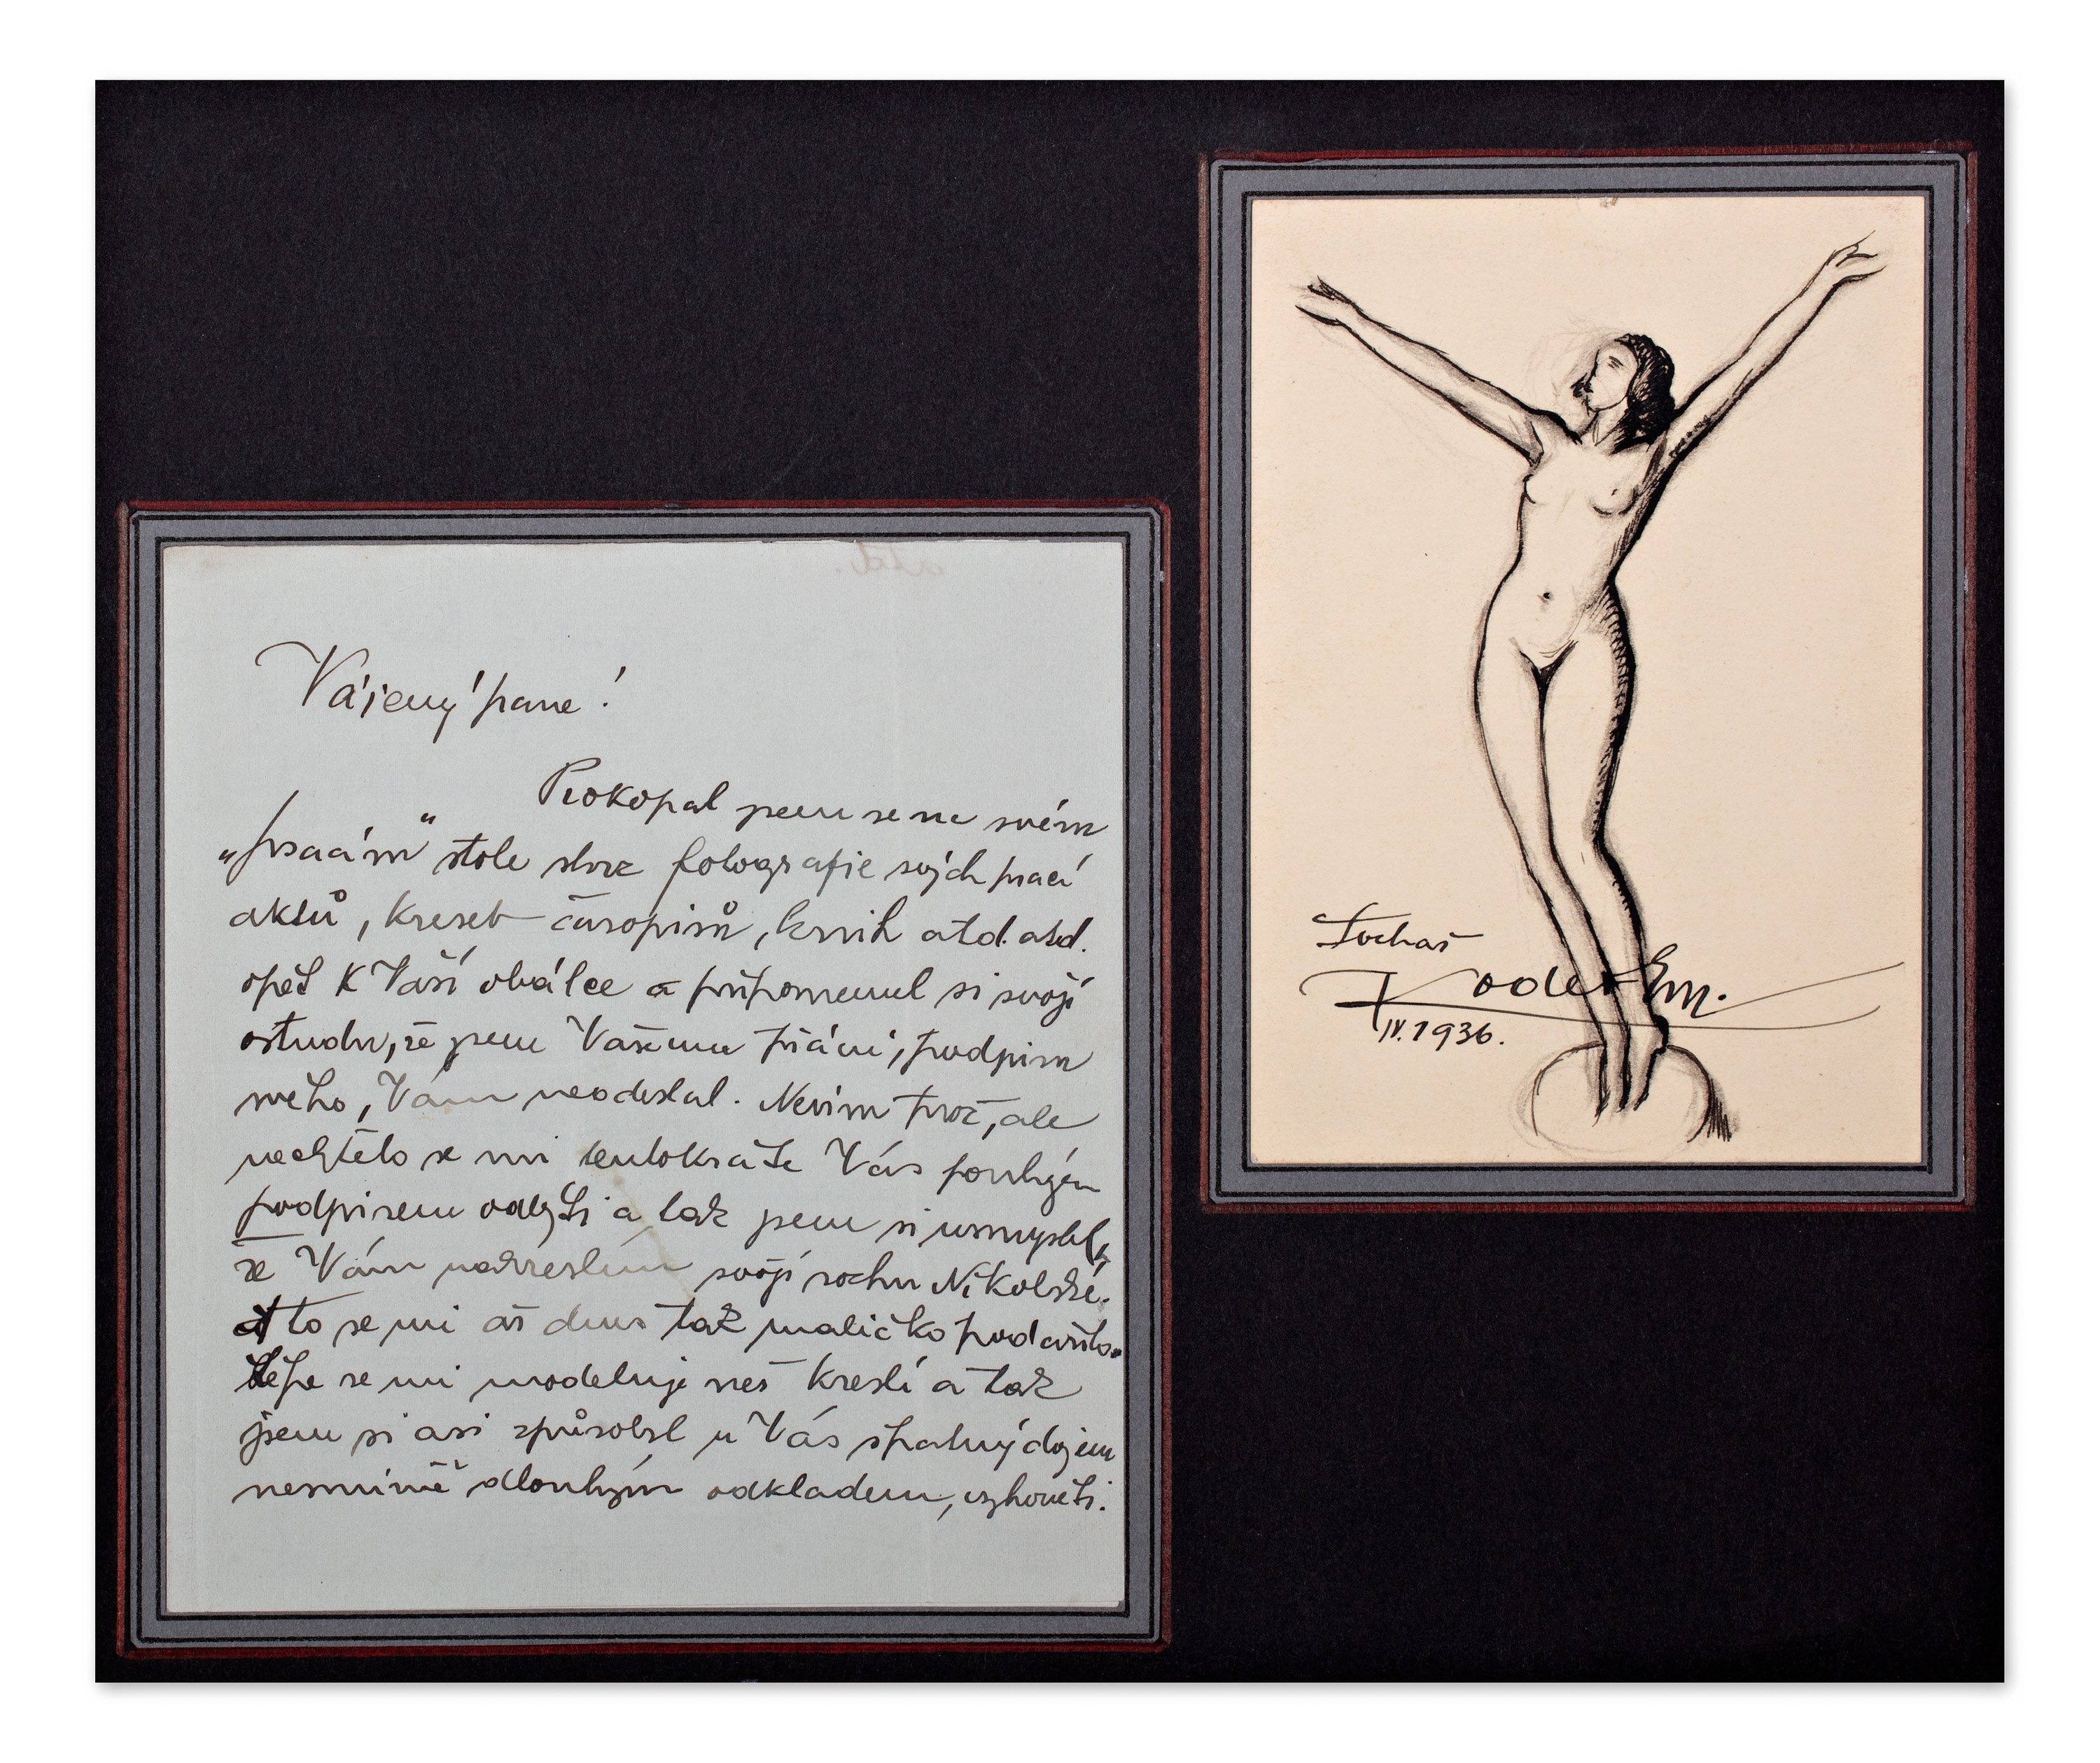 Vážený pane!
Prokopal jsem se na svém
„psacím“ stole skrz fotografie svých prací
aktů, kreseb časopisů, knih atd. atd.
opět k Vaší obálce a připomenul si svoji
ostudu, že jsem Vašemu přání, podpisu
mého, Vám neodeslal. Nevím proč, ale
nechtělo se mi tentokráte Vás pouhým
podpisem odbýti a tak jsem si usmyslel,
že Vám nakreslím svoji sochu Nikolské.
A to se mi až dnes tak maličko podařilo.
Lépe se mi modeluje než kreslí a tak
jsem si asi způsobil u Vás špatný dojem
nesmírně dlouhým odkladem, vyhověti.
Sochař
Kodet Em.
IV. 1936.